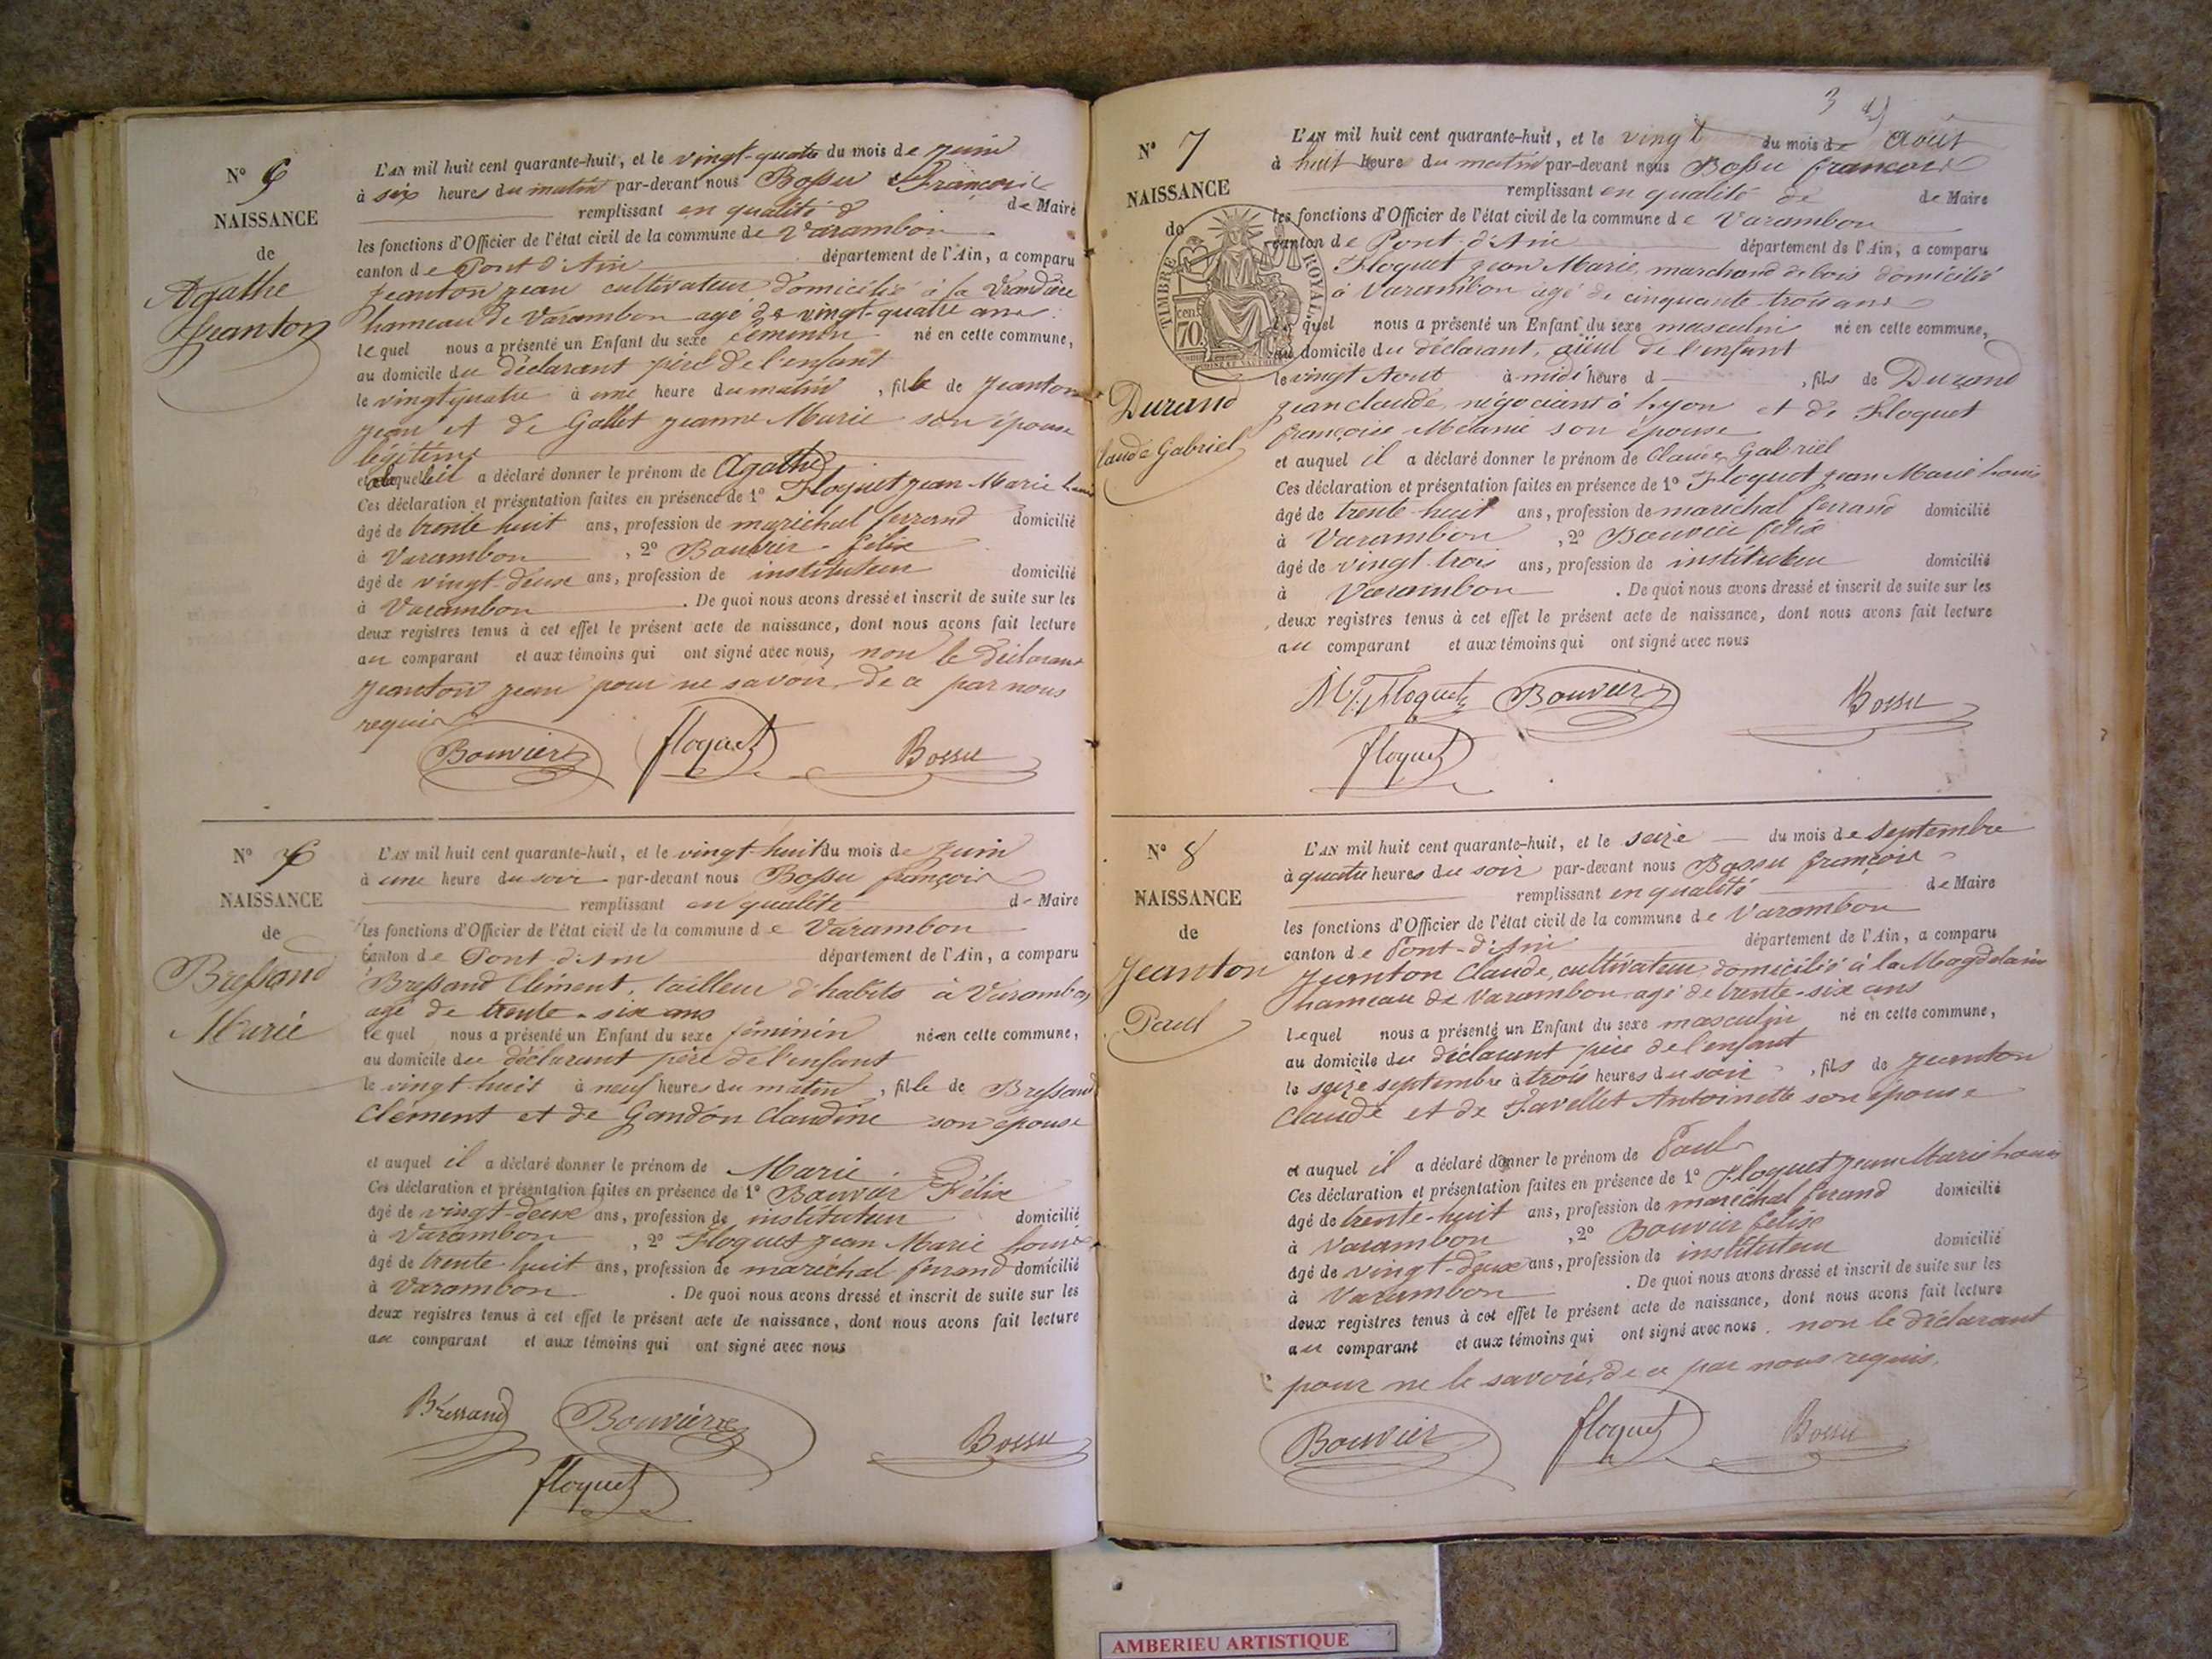 L'AN mil huit cent quarante-huit, et le vingt-quatre du mois de juin
à six heures du matin par-devant nous Bossu François
remplissant en qualité de Maire
les fonctions d'Officier de l'état civil de la commune de Varambon
canton de Pont d'Ain département de l'Ain, a comparu
Jeanton Jean cultivateur domicilié à la
hameau de Varambon agé de vingt-quatre ans
lequel nous a présenté un Enfant du sexe féminin né en cette commune,
au domicile du déclarant père de l'enfant
le vingt quatre à une heure du matin, fille de Jeanton
Jean et de Gallet Jeanne Marie son épouse
légitime
a déclaré donner le prénom de Agathe
Ces déclaration et présentation faites en présence de 1° Floquet Jean Marie Louis
âgé de trente huit ans, profession de maréchal ferrand domicilié
à Varambon, 2° Bouvier félix
âgé de vingt-deux ans, profession de instituteur domicilié
à Varambon. De quoi nous avons dressé et inscrit de suite sur les
deux registres tenus à cet effet le présent acte de naissance, dont nous avons fait lecture
au comparant et aux témoins qui ont signé avec nous, non le déclarant
Jeanton Jean pour ne savoir, de ce par nous
requis
Bouvier floquet Bossu
N°
NAISSANCE
de
Agathe
Jeanton
L'AN mil huit cent quarante-huit, et le vingt-huit du mois de juin
à une heure du soir par-devant nous Bossu françois
remplissant en qualité de Maire
les fonctions d'Officier de l'état civil de la commune de Varambon
canton de Pont d'Ain département de l'Ain, a comparu
Bressand Clément, tailleur d'habits à Varambon
agé de trente-six ans
lequel nous a présenté un Enfant du sexe féminin né en cette commune,
au domicile du déclarant père de l'enfant
le vingt huit à neuf heures du matin, fille de Bressand
Clément et de Gandon Claudine son épouse
et auquel il a déclaré donner le prénom de Marie
Ces déclaration et présentation faites en présence de 1° Bouvier Félix
âgé de vingt-deux ans, profession de instituteur domicilié
à Varambon, 2° Floquet Jean Marie Louis
âgé de trente huit ans, profession de maréchal ferrand domicilié
à Varambon. De quoi nous avons dressé et inscrit de suite sur les
deux registres tenus à cet effet le présent acte de naissance, dont nous avons fait lecture
au comparant et aux témoins qui ont signé avec nous
Bressand Bouvier Bossu
floquet
N°
NAISSANCE
de
Bressand
Marie
3
L'AN mil huit cent quarante-huit, et le vingt du mois de Août
à huit heure du matin par-devant nous Bossu françois
remplissant en qualité de de Maire
les fonctions d'Officier de l'état civil de la commune de Varambon
canton de Pont-d'Ain département de l'Ain, a comparu
Floquet Jean Marie, marchand de bois domicilié
à Varambon agé de cinquante trois ans
lequel nous a présenté un Enfant du sexe masculin né en cette commune,
au domicile du déclarant, aïeul de l'enfant
le vingt Aout à midi heure d, fils de Durand
Jean claude, négociant à Lyon et de Floquet
françoise Mélanie son épouse
et auquel il a déclaré donner le prénom de Claude Gabriel
Ces déclaration et présentation faites en présence de 1° Floquet Jean Marie Louis
âgé de trente-huit ans, profession de maréchal ferrand domicilié
à Varambon, 2° Bouvier félix
âgé de vingt-trois ans, profession de instituteur domicilié
à Varambon. De quoi nous avons dressé et inscrit de suite sur les
deux registres tenus à cet effet le présent acte de naissance, dont nous avons fait lecture
au comparant et aux témoins qui ont signé avec nous
Floquet Bouvier Bossu
floquet
N° 7
NAISSANCE
de
TIMBRE ROYAL
70
Durand
Claude Gabriel
L'AN mil huit cent quarante-huit, et le seize du mois de septembre
à quatre heures du soir par-devant nous Bossu françois
remplissant en qualité de Maire
les fonctions d'Officier de l'état civil de la commune de Varambon
canton de Pont-d'Ain département de l'Ain, a comparu
Jeanton Claude, cultivateur domicilié à la Magdelaine
hameau de Varambon agé de trente-six ans
lequel nous a présenté un Enfant du sexe masculin né en cette commune,
au domicile du déclarant père de l'enfant
le seize septembre à trois heures du soir, fils de Jeanton
Claude et de Favellet Antoinette son épouse
et auquel il a déclaré donner le prénom de Paul
Ces déclaration et présentation faites en présence de 1° Floquet Jean Marie Louis
âgé de trente-huit ans, profession de maréchal ferand domicilié
à Varambon, 2° Bouvier félix
âgé de vingt-deux ans, profession de instituteur domicilié
à Varambon. De quoi nous avons dressé et inscrit de suite sur les
deux registres tenus à cet effet le présent acte de naissance, dont nous avons fait lecture
au comparant et aux témoins qui ont signé avec nous. non le déclarant
pour ne le savoir, de ce par nous requis.
Bouvier floquet Bossu
N° 8
NAISSANCE
de
Jeanton
Paul
AMBERIEU ARTISTIQUE